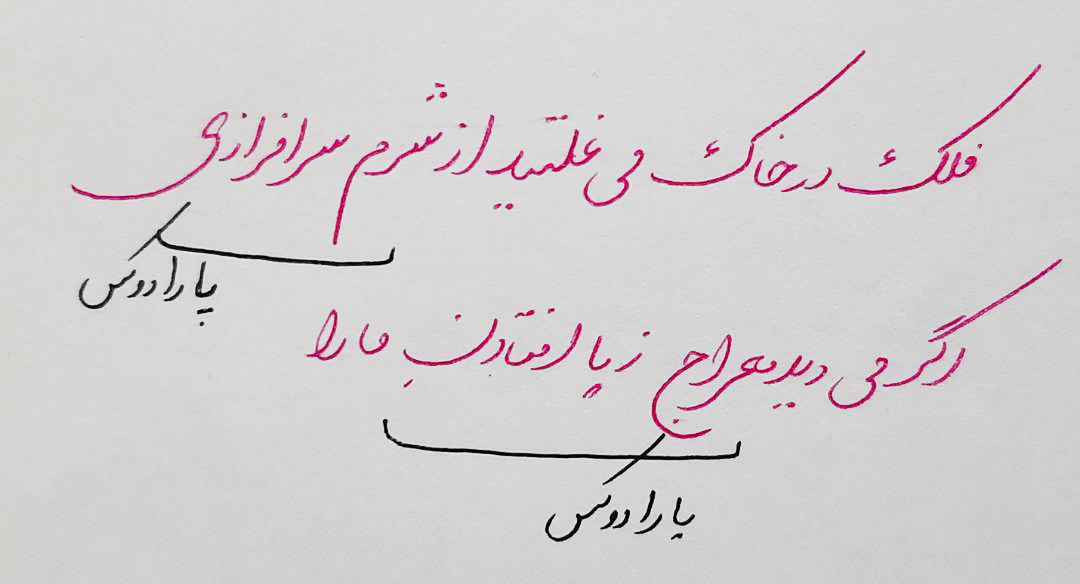 فلک در خاک می غلتید از شرم سرافرازی
پارادوکس
اگر می دید معراج ز پا افتادن ما را
پارادوکس